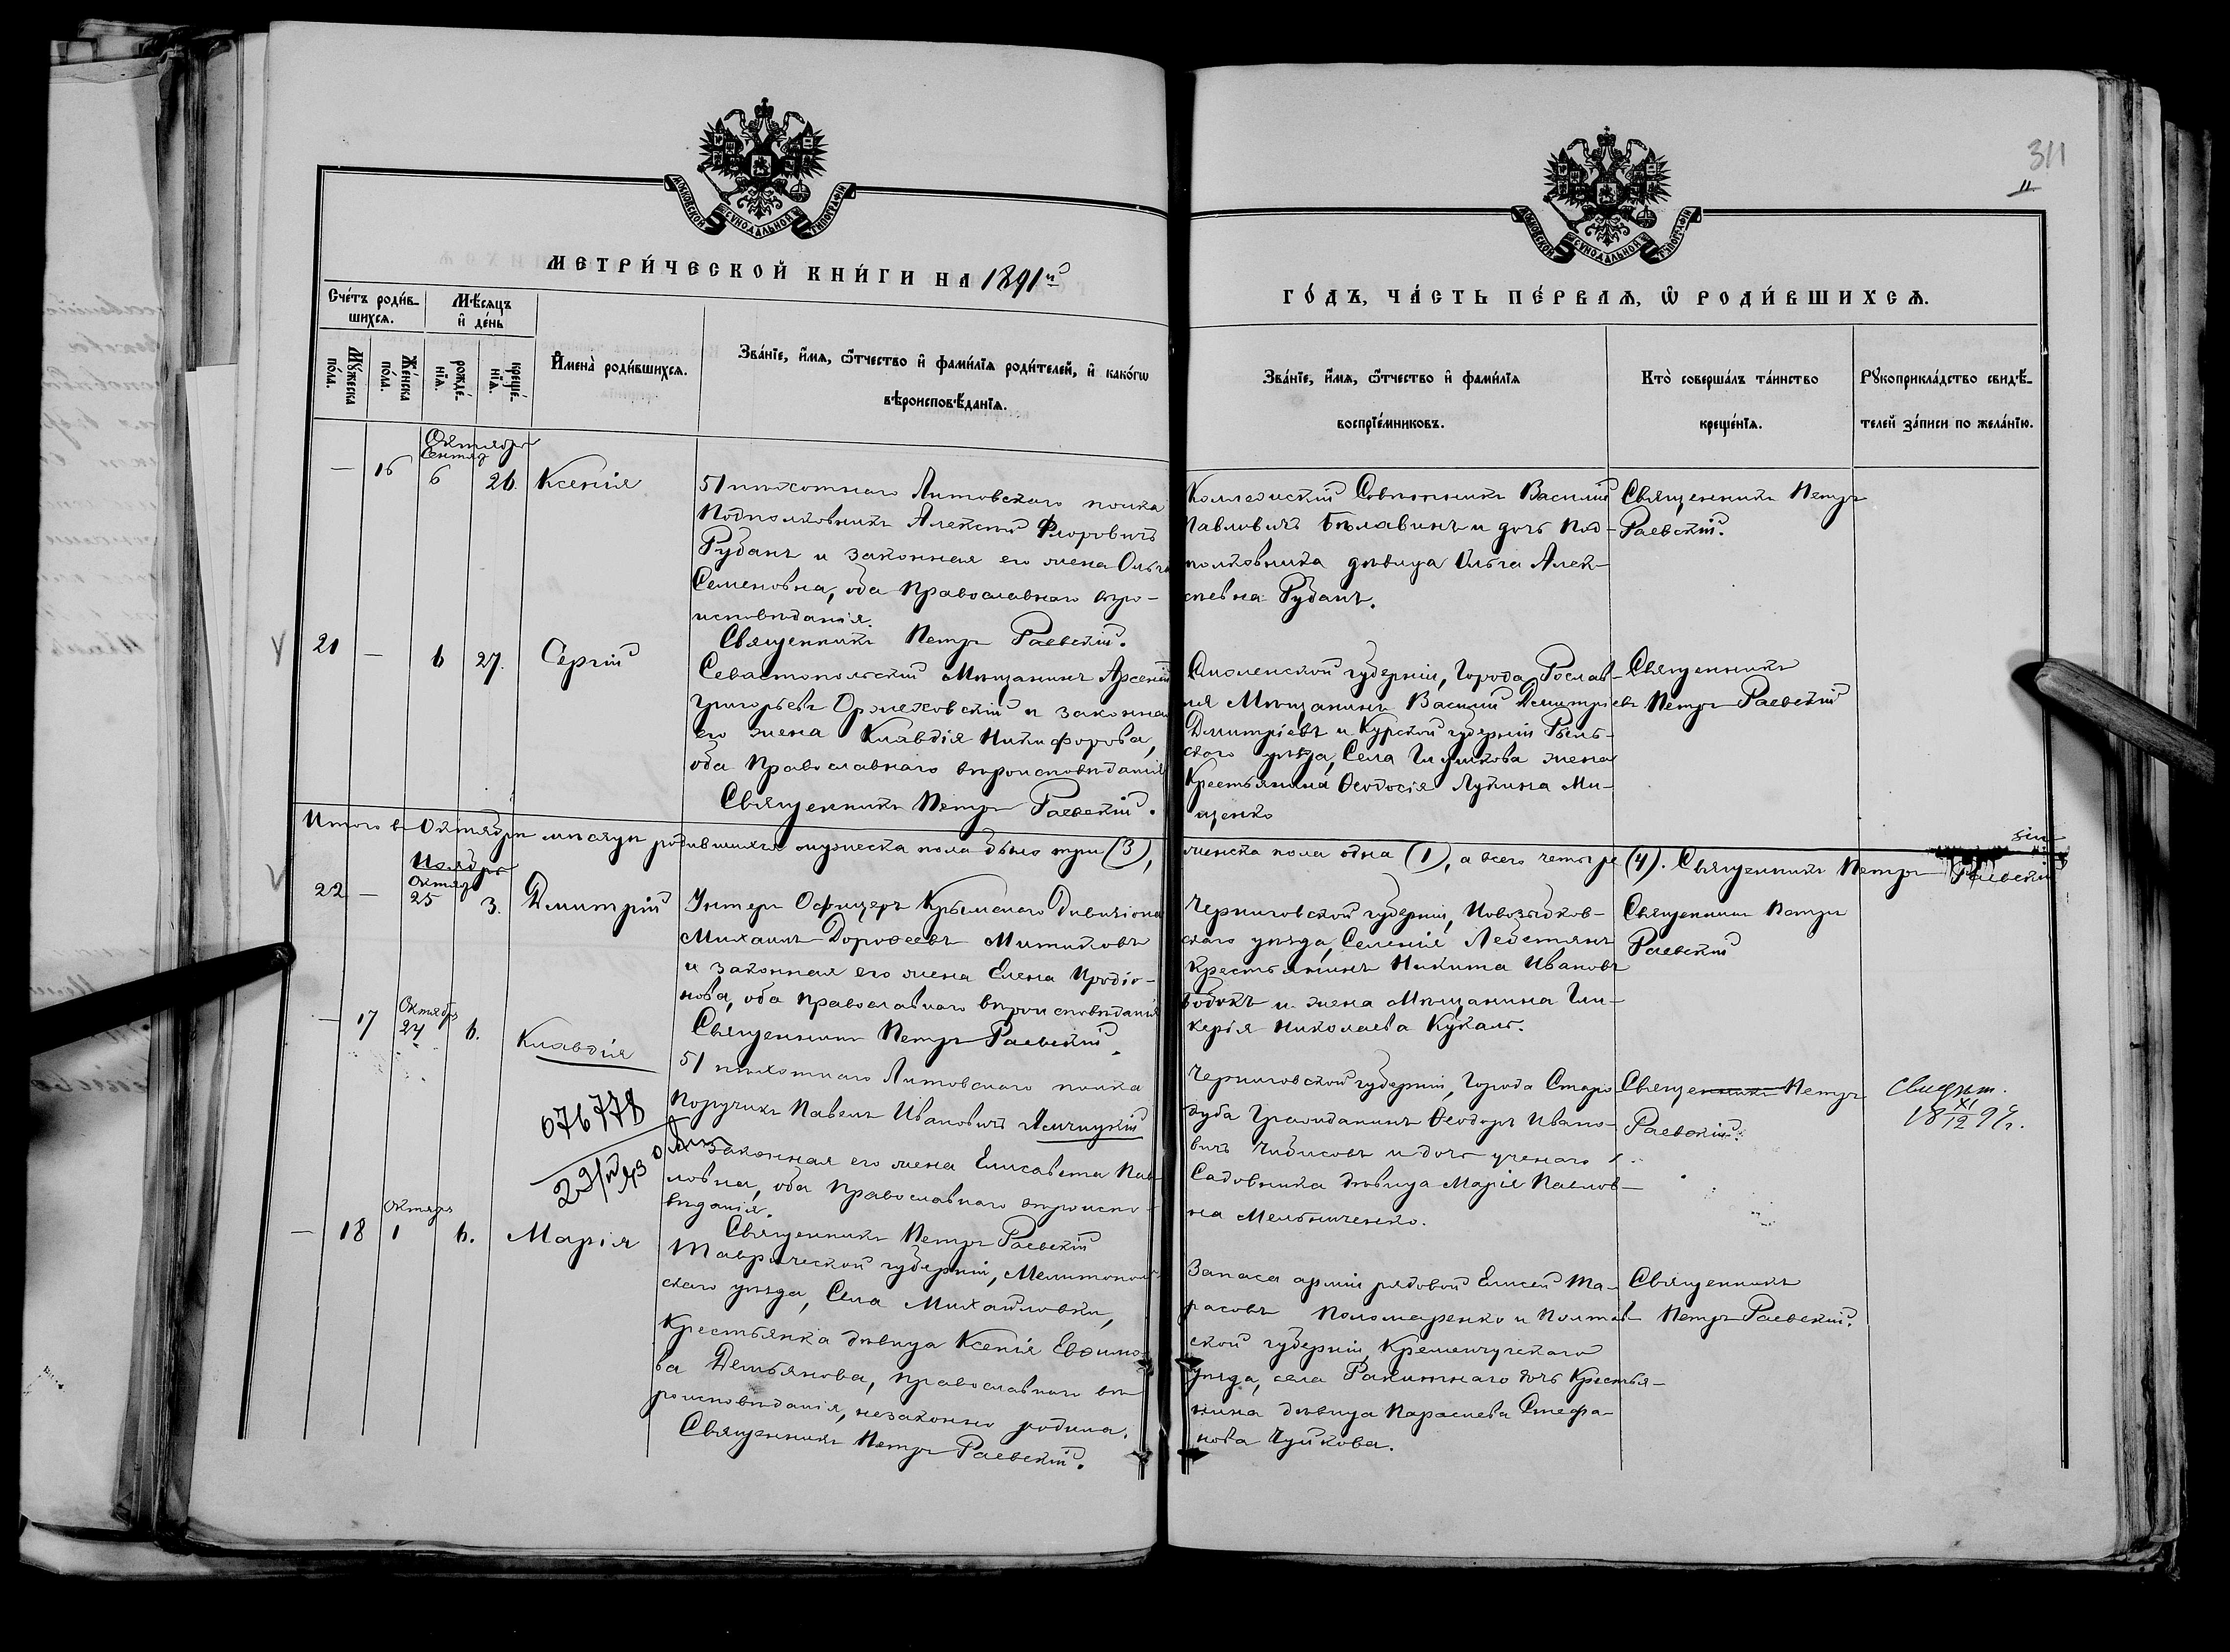 311
11
МОСКОВСКОЙ СѴНОДАЛЬНОЙ ТИПОГРАФІИ
МОСКОВСКОЙ СѴНОДАЛЬНОЙ ТИПОГРАФІИ
МЕТРИ́ЧЕСКОЙ КНИ́ГИ НА 1891й
ГО́ДЪ, ЧА́СТЬ ПЕ́РВАѦ, Ѽ РОДИ́ВШИХСѦ.
Сче́тъ роди́в-
шихсѧ.
Мѣ́сяцъ
и҆ де́нь
Мꙋ́жеска
по́ла.
Же́нска
по́ла.
рожде́-
нїѧ.
креще́-
нїѧ.
И҆мена̀ роди́вшихсѧ.
Зва́нїе, и҆́мѧ, ѻ҆́тчество и҆ фами́лїѧ роди́телей, и҆ како́гѡ
вѣроисповѣ́данїѧ.
Зва́нїе, и҆́мѧ, ѻ҆́тчество и҆ фами́лїѧ
воспрїе́мниковъ.
Кто̀ соверша́лъ та́инство
креще́нїѧ.
Рꙋкоприкла́дство свидѣ́-
телей за́писи по жела́нїю.
Октябрь
Сентяб
— 16 6 26. Ксенія
51 пѣхотнаго Литовскаго полка
Подполковникъ Алексѣй Флоровичъ
Рубанъ и законная его жена Ольга
Семеновна, оба православнаго вѣро-
исповѣданія.
Священникъ Петръ Раевскій.
Коллежскій Совѣтникъ Василій
Павловичъ Бѣлавинъ и дочь Под-
полковника дѣвица Ольга Алек-
сѣевна Рубанъ.
Священникъ Петръ
Раевскій.
21 — 6 27. Сергій
Севастопольскій Мѣщанинъ Арсеній
Григорьевъ Оржеховскій и законная
его жена Клавдія Никифорова,
оба православнаго вѣроисповѣданія
Священникъ Петръ Раевскій.
Смоленской губерніи, Города Рослав-
ля Мѣщанинъ Василій Димитріевъ
Димитріевъ и Курской губерніи Рыль-
скаго уѣзда, Села жена
Крестьянина Ѳеодосія Лукина Ми-
щенко
Священникъ
Петръ Раевскій
Итого въ Октябрѣ мѣсяцѣ родившихся мужеска пола было три (3), женска пола одна (1), а всего четыре (4). Священникъ Петръ Раевскій
Ноябрь
Октяб
22 — 25 3. Димитрій
Унтеръ Офицеръ Крымскаго Дивизіона
Михаилъ Дороѳеевъ Митиковъ
и законная его жена Елена Иродіо-
нова, оба православнаго вѣроисповѣданія
Священникъ Петръ Раевскій.
Черниговской губерніи, Новозыбков-
скаго уѣзда, Селенія
Крестьянинъ Никита Ивановъ
и жена Мѣщанина Гли-
керія Николаева
Священникъ Петръ
Раевскій
Октябр
— 17 24 6. Клавдія
076778
51 пѣхотнаго Литовскаго полка
Поручикъ Павелъ Ивановичъ
законная его жена Елисавета Пав-
ловна, оба православнаго вѣроиспо-
вѣданія.
Священникъ Петръ Раевскій
Черниговской губерніи, Города Старо
дуба Гражданинъ Ѳеодоръ Ивано-
вичъ Чибисовъ и дочь ученаго
Садовника дѣвица Марія Павлов-
на Мельниченко.
Священникъ Петръ
Раевскій.
Октябр
— 18 1 6. Марія
Таврической губерніи, Мелитополь
скаго уѣзда, Села Михайловки,
Крестьянка дѣвица Ксенія Евѳимо-
ва Демьянова, православнаго вѣ
роисповѣданія, незаконно родила.
Священникъ Петръ Раевскій.
Запаса арміи рядовой Елисей Та-
расовъ Поломаренко и Полтав-
ской губерніи, Кременчугскаго
уѣзда, села Ракитнаго дочь Крестья-
нина дѣвица Параскева Стефа-
нова Чуйкова.
Священникъ
Петръ Раевскій.